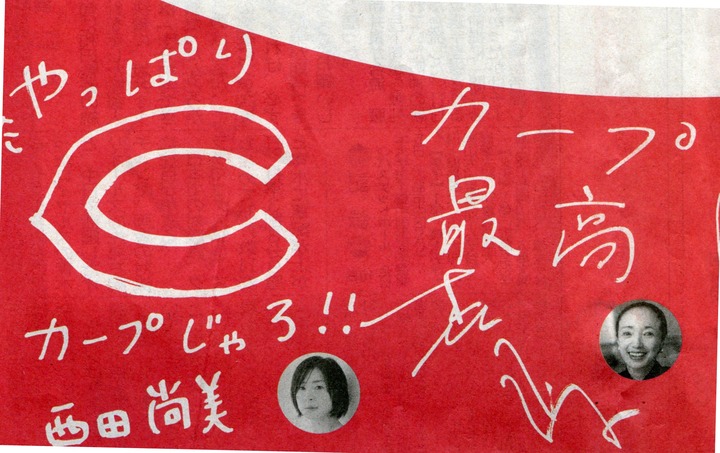 やっぱり
C
カープじゃろ!!
西田尚美
カープ
最高